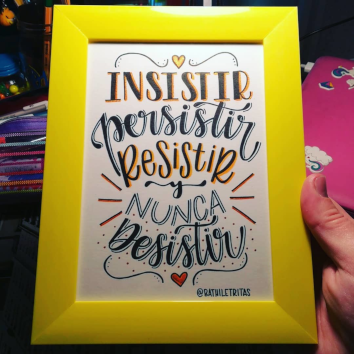 INSISTIR
persistir
ReSiStiR
y
NUNCA
Desistir
@BATHILETRITAS